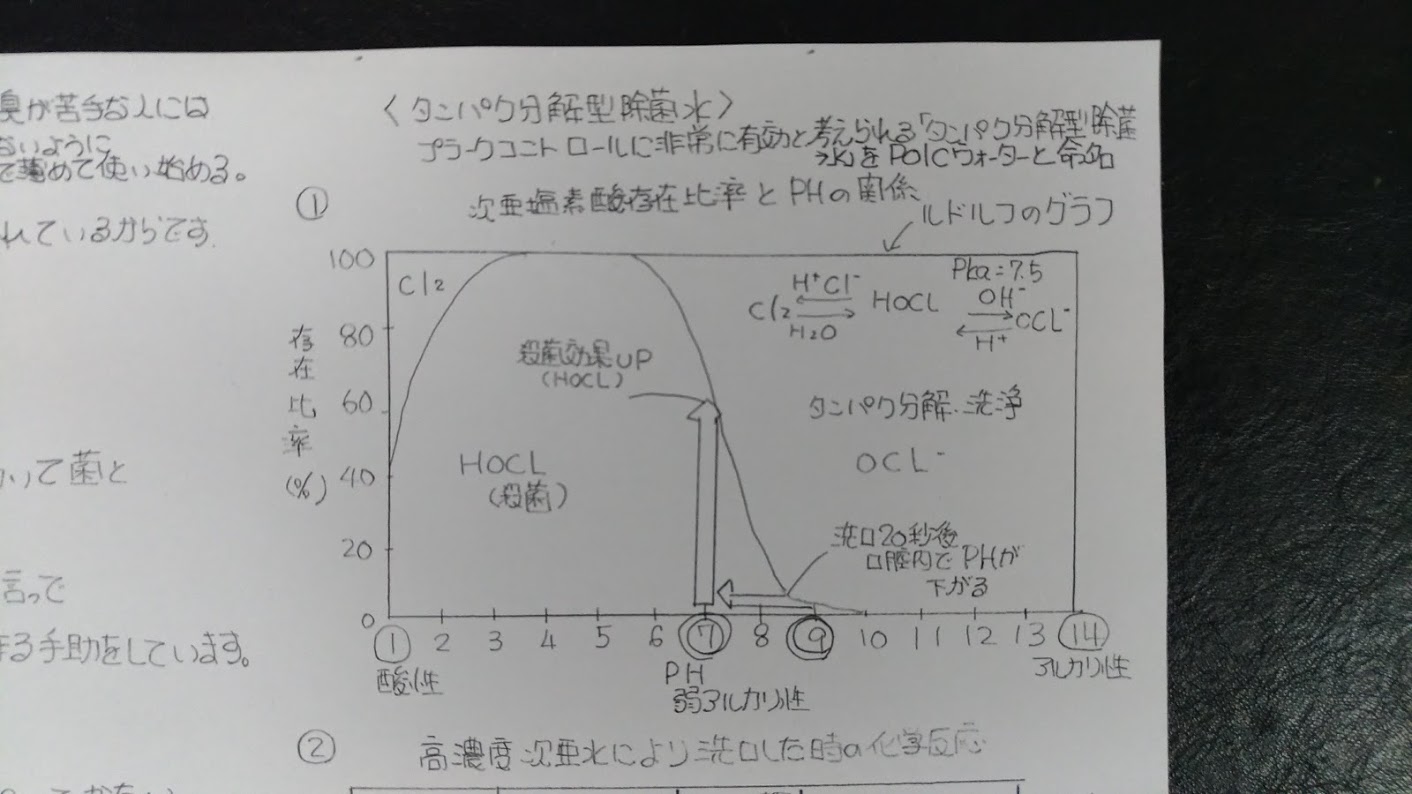 臭が苦手な人には
ないように
で薄めて使い始める。
れているからです。
いて菌と
言って
する手助をしています。
〈タンパク分解型除菌水〉
プラークコントロールに非常に有効と考えられる「タンパク分解型除菌
水」をPOICウォーターと命名
① 次亜塩素酸存在比率とPHの関係
ルドルフのグラフ
存在比率(%)
100
80
60
40
20
0
Cl2
殺菌効果UP
(HOCL)
HOCL
(殺菌)
Pka=7.5
H⁺Cl⁻ OH⁻
Cl2 HOCL OCL⁻
H2O H⁺
タンパク分解.洗浄
OCL⁻
洗口20秒後
口腔内でPHが
下がる
1 2 3 4 5 6 7 8 9 10 11 12 13 14
酸性 PH アルカリ性
弱アルカリ性
② 高濃度次亜水により洗口した時の化学反応